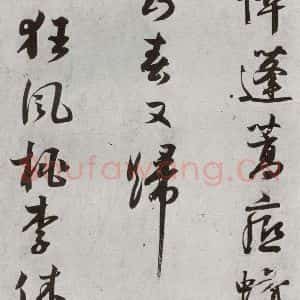 蓬蒿
春又歸
狂風桃李
shufawang.cn